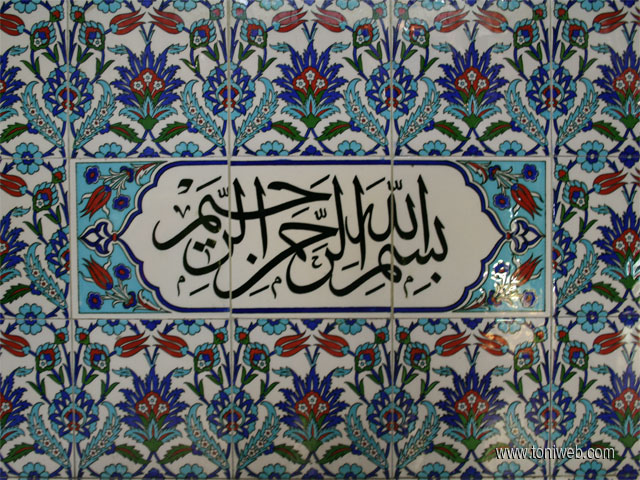 بسم الله الرحمن الرحيم
www.toniweb.com